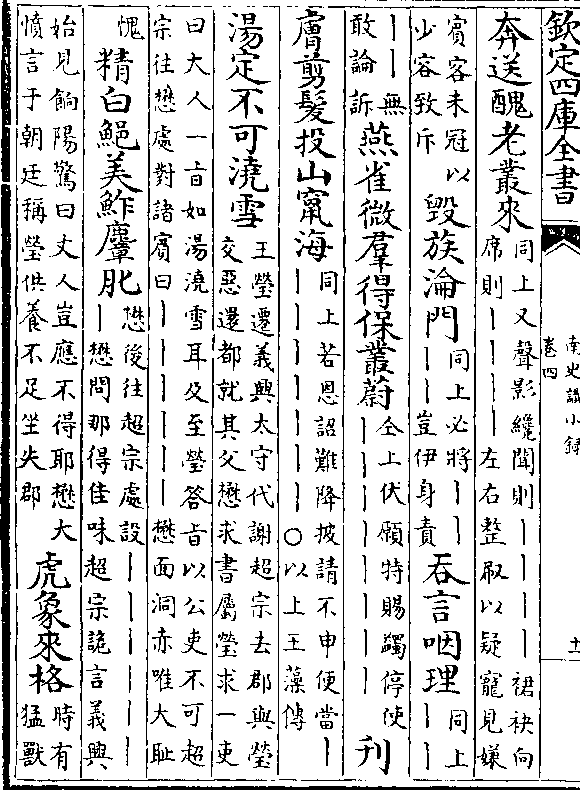 欽定四庫全書
南史識小録
卷四
十一
奔送醜老叢來
同上又聲影纔聞則｜｜｜｜裙袂向
席則｜｜｜｜左右整刷以疑寵見嫌
賓客未冠以
少容致斥
毀族淪門
同上必將｜｜
｜｜豈伊身責
吞言咽理
同上
｜｜｜｜
｜｜無
敢論訴
燕雀微羣得保叢蔚
仝上伏願特賜蠲停使
｜｜｜｜｜｜｜｜
刊
膚剪髮投山竄海
同上若恩詔難降披請不申便當｜
｜｜｜｜｜｜○以上王藻傳
湯定不可澆雪
王瑩遷義興太守代謝超宗去郡與瑩
交惡還都就其父懋求書屬瑩求一吏
曰大人一㫖如湯澆雪耳及至瑩答㫖以公吏不可超
宗往懋處對諸賓曰｜｜｜｜｜｜懋面洞赤唯大恥
愧
精白鮑美鮓麞肶
懋後往超宗處設｜｜｜｜｜｜
｜懋問那得佳味超宗詭言義興
始見餉陽驚曰丈人豈應不得耶懋大
憤言于朝廷稱瑩供養不足坐失郡
虎象來格
時有
猛獸